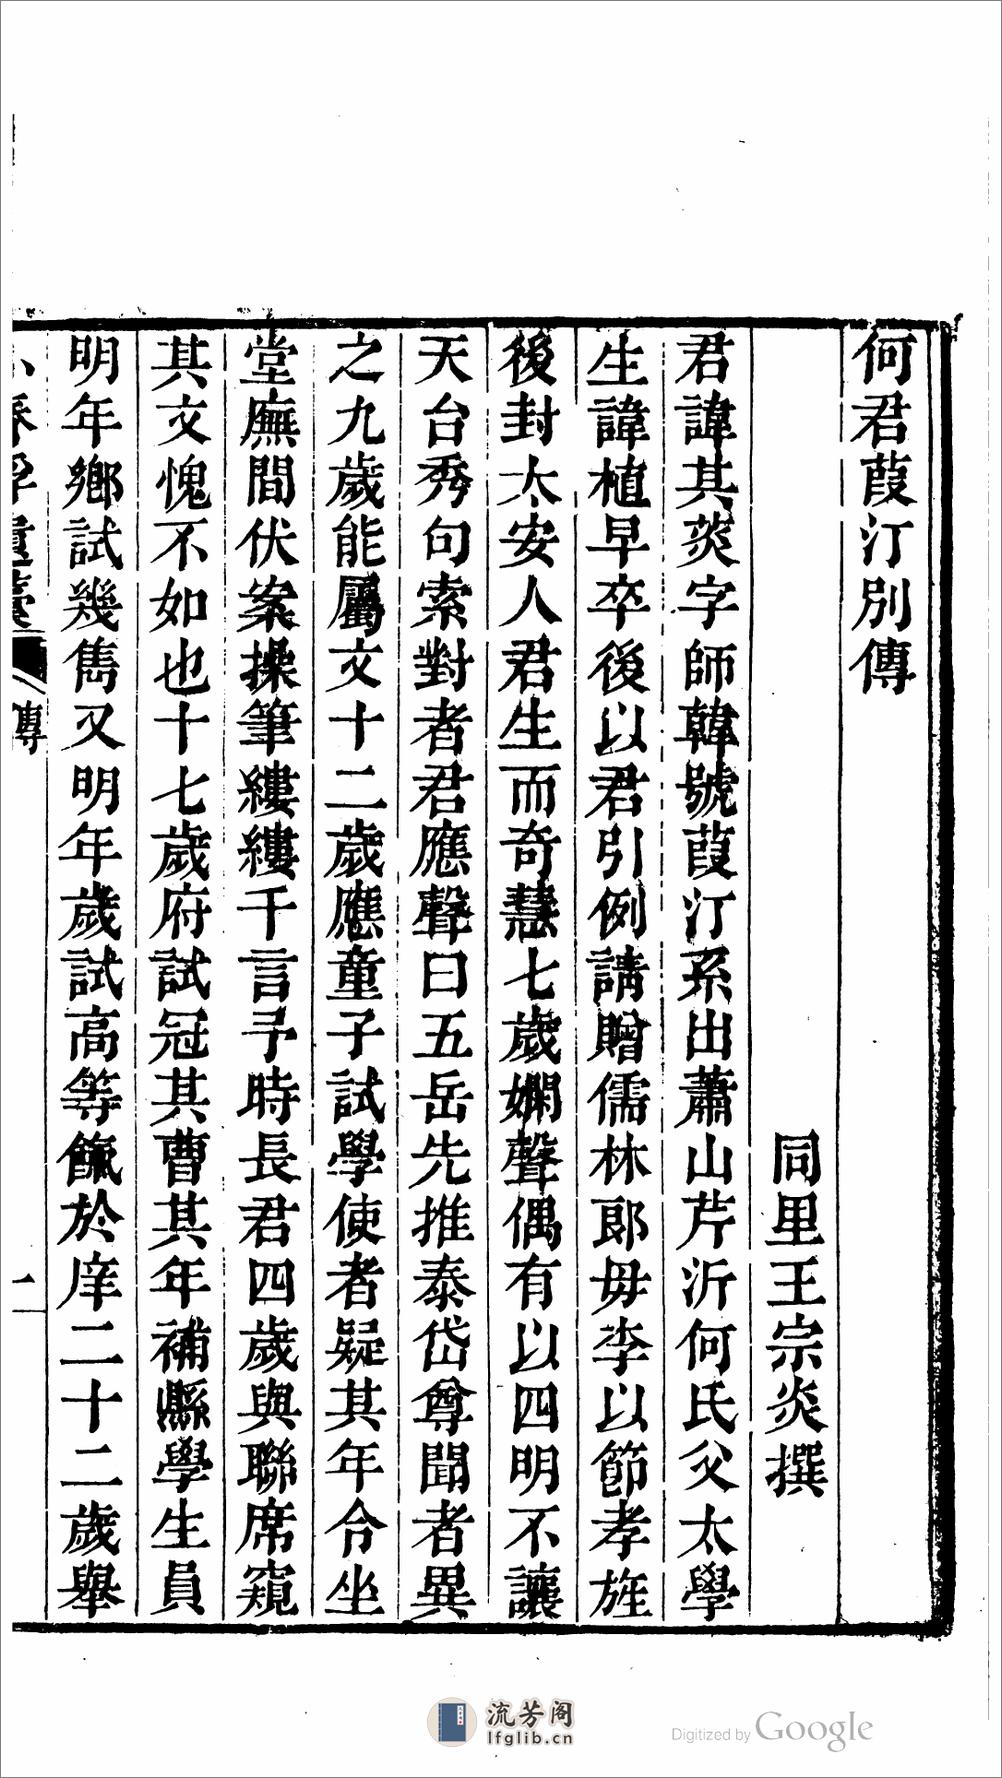 何君葭汀別傳
同里王宗炎撰
君諱其菼字師韓號葭汀系出蕭山芹沂何氏父太學
生諱植早卒後以君引例請贈儒林郎毋李以節孝旌
後封太安人君生而奇慧七歲嫻聲偶有以四明不讓
天台秀句索對者君應聲曰五岳先推泰岱尊聞者異
之九歲能屬文十二歲應童子試學使者疑其年令坐
堂廡間伏案操筆縷縷千言予時長君四歲與聯席窺
其文愧不如也十七歲府試冠其曹其年補縣學生員
明年鄉試幾雋又明年歲試高等餼於庠二十二歲舉
傳
二
流芳阁
lfglib.cn
Digitized by Google